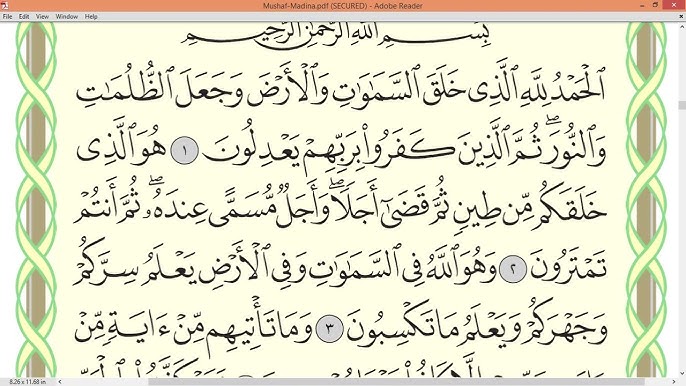 Mushaf-Madina.pdf (SECURED) - Adobe Reader
File Edit View Window Help
بِسْمِ ٱللَّهِ ٱلرَّحْمَٰنِ ٱلرَّحِيمِ
ٱلْحَمْدُ لِلَّهِ ٱلَّذِى خَلَقَ ٱلسَّمَٰوَٰتِ وَٱلْأَرْضَ وَجَعَلَ ٱلظُّلُمَٰتِ
وَٱلنُّورَۖ ثُمَّ ٱلَّذِينَ كَفَرُوا۟ بِرَبِّهِمْ يَعْدِلُونَ ١ هُوَ ٱلَّذِى
خَلَقَكُم مِّن طِينٍ ثُمَّ قَضَىٰٓ أَجَلًاۖ وَأَجَلٌ مُّسَمًّى عِندَهُۥۖ ثُمَّ أَنتُمْ
تَمْتَرُونَ ٢ وَهُوَ ٱللَّهُ فِى ٱلسَّمَٰوَٰتِ وَفِى ٱلْأَرْضِ يَعْلَمُ سِرَّكُمْ
وَجَهْرَكُمْ وَيَعْلَمُ مَا تَكْسِبُونَ ٣ وَمَا تَأْتِيهِم مِّنْ ءَايَةٍ مِّنْ
8.26 x 11.68 in